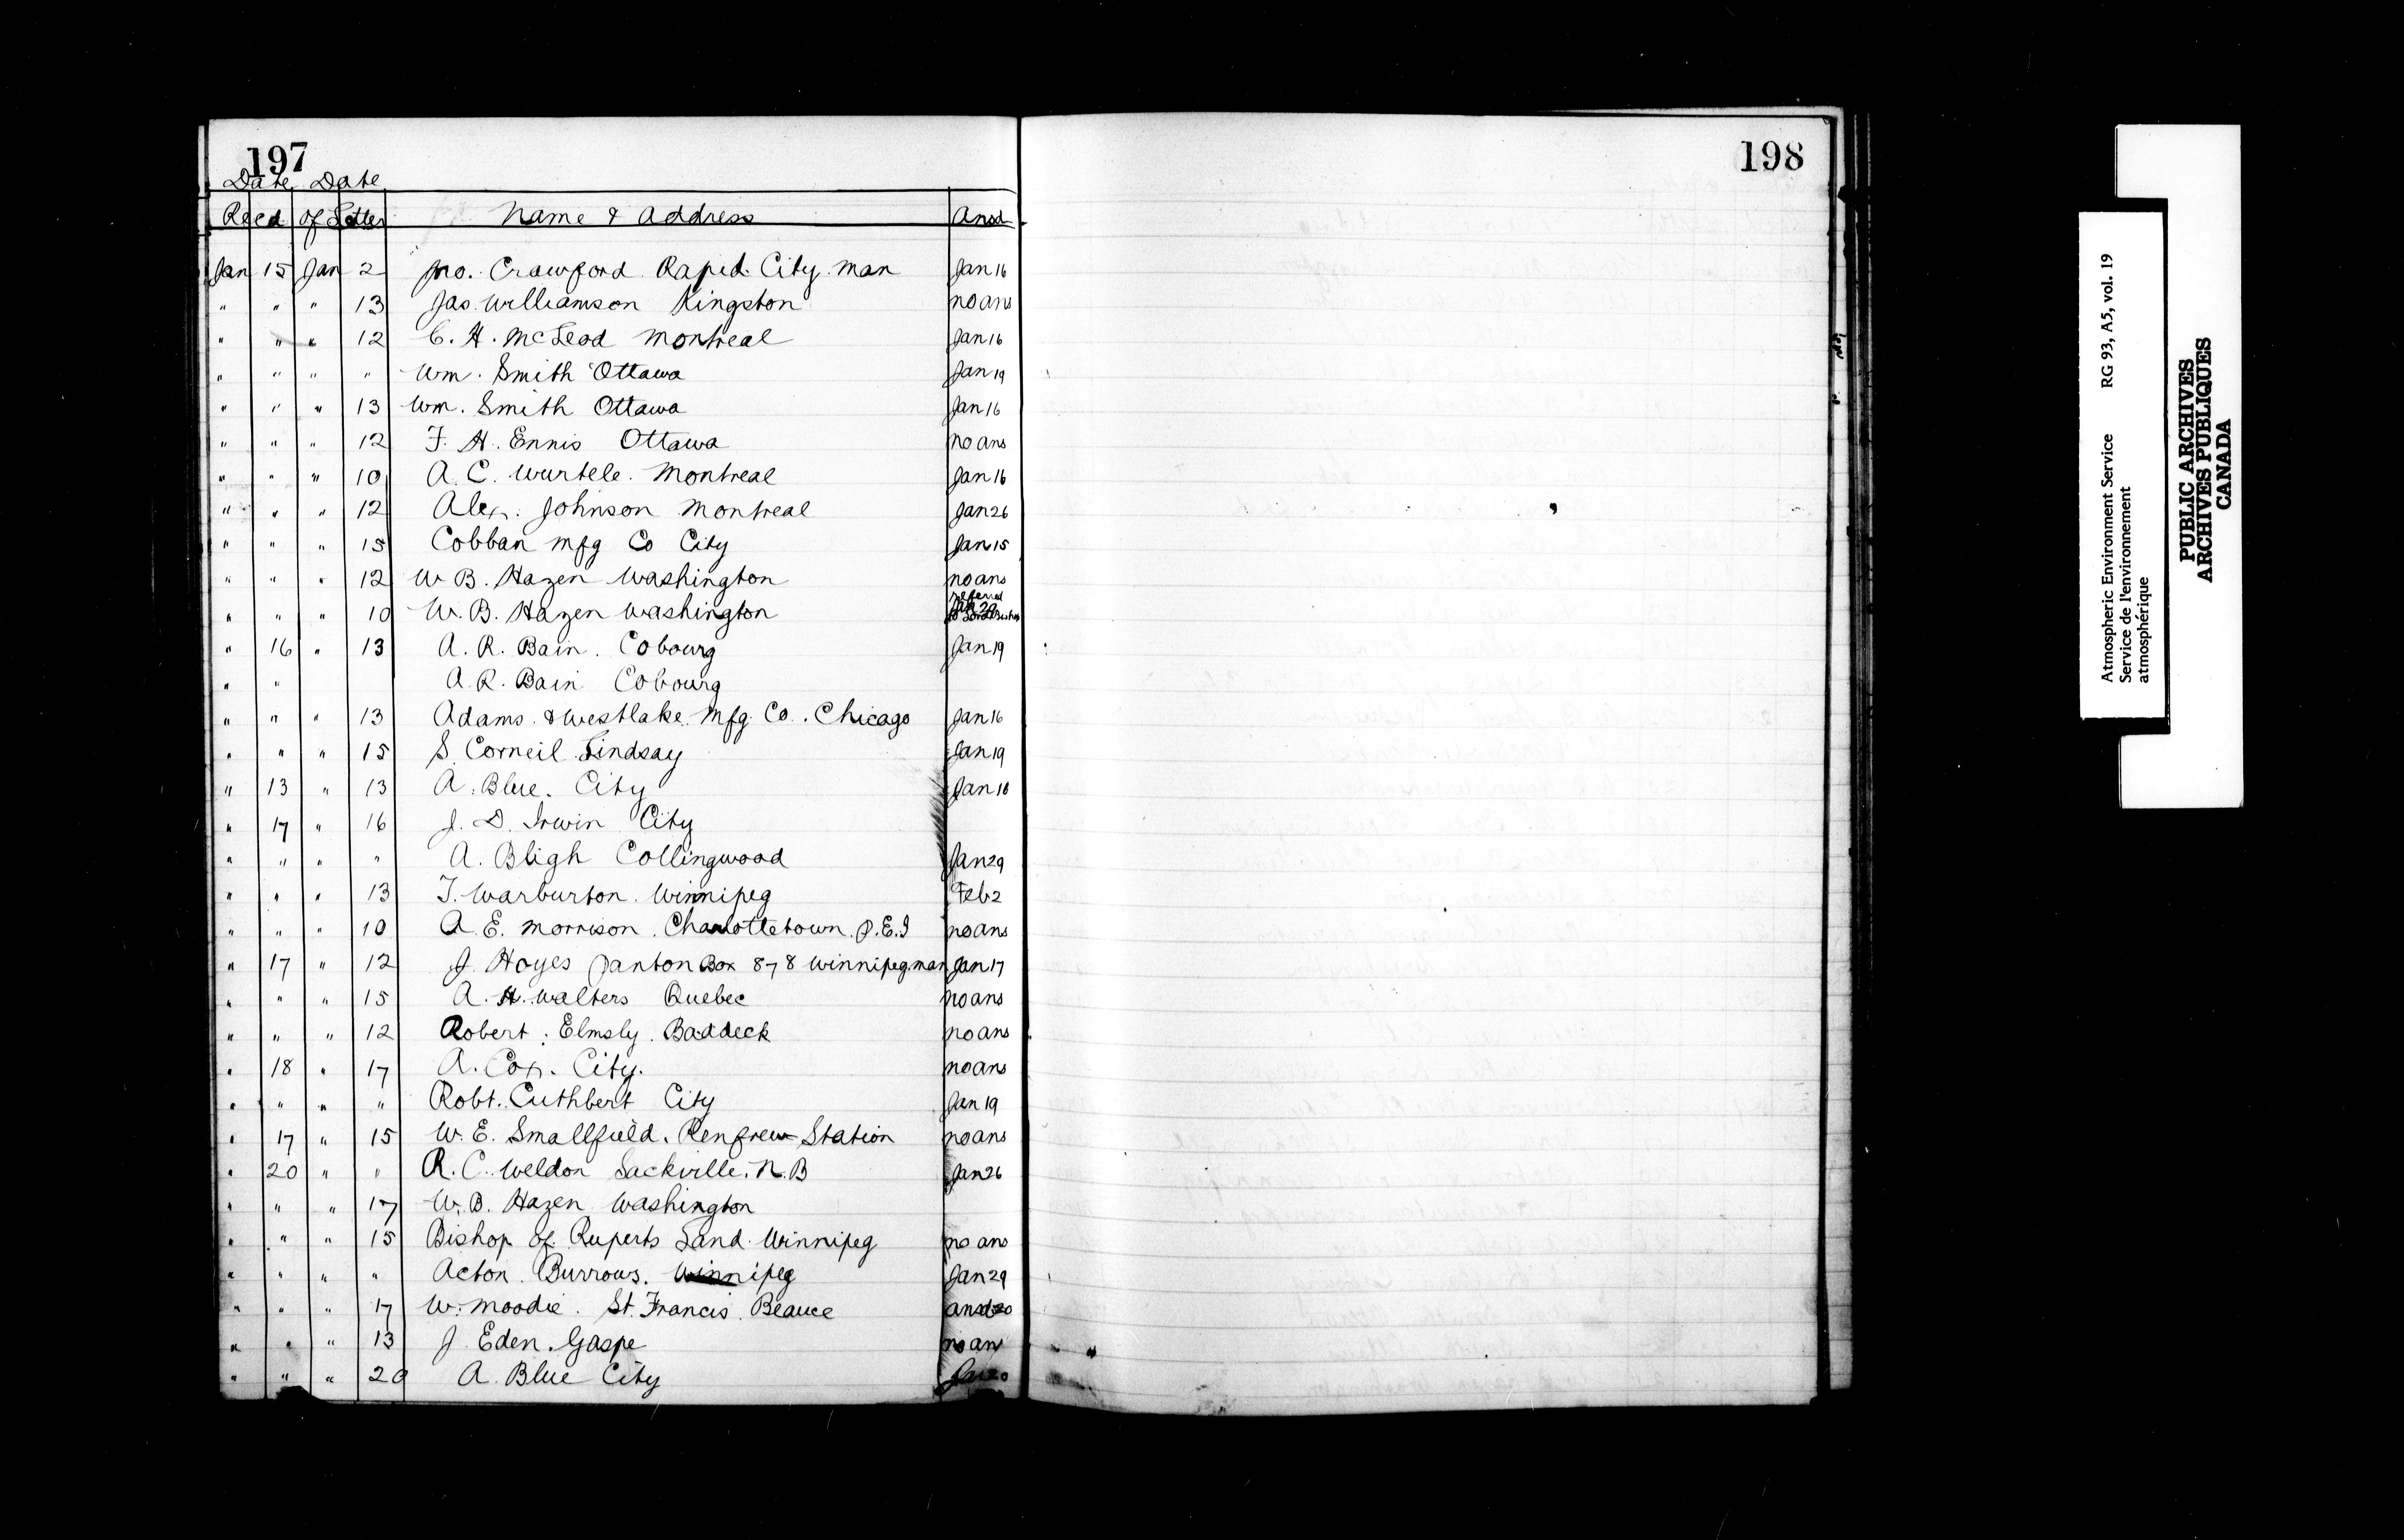 197
Date Date
Recd of Letter Name & Address Ansd
Jan 15 Jan 2 Jno. Crawford Rapid City Man Jan 16
" " " 13 Jas Williamson Kingston no ans
" " " 12 C. H. McLeod Montreal Jan 16
" " " " Wm. Smith Ottawa Jan 19
" " " 13 Wm. Smith Ottawa Jan 16
" " " 12 F. H. Ennis Ottawa no ans
" " " 10 A. C. Wurtele Montreal Jan 16
" " " 12 Alex. Johnson Montreal Jan 26
" " " 15 Cobban Mfg Co City Jan 15
" " " 12 W B. Hazen Washington no ans
" " " 10 W. B. Hazen Washington referred Jan 20 to
" 16 " 13 A. R. Bain. Cobourg Jan 19
" " A. R. Bain Cobourg
" " " 13 Adams & Westlake Mfg Co. Chicago Jan 16
" " " 15 S. Corneil Lindsay Jan 19
" 13 " 13 A. Blue. City Jan 18
" 17 " 16 J. D. Irwin City
" " " " A. Bligh Collingwood Jan 29
" " " 13 T. Warburton. Winnipeg Feb 2
" " " 10 A. E. Morrison. Charlottetown. P.E.I no ans
" 17 " 12 J. Hoyes Panton Box 878 Winnipeg. Man Jan 17
" " " 15 A. H. Walters Quebec no ans
" " " 12 Robert. Elmsly. Baddeck no ans
" 18 " 17 A. Cox. City. no ans
" " " " Robt. Cuthbert City Jan 19
" 17 " 15 W. E. Smallfield. Renfrew Station no ans
" 20 " " R. C. Weldon Sackville. N. B Jan 26
" " " 17 W. B. Hazen Washington
" " " 15 Bishop of Ruperts Land Winnipeg no ans
" " " " Acton. Burrows. Winnipeg Jan 29
" " " 17 W. Moodie. St. Francis. Beauce ansd 20
" " " 13 J. Eden. Gaspe no ans
" " " 20 A. Blue City Jan 20
198
Atmospheric Environment Service RG 93, A5, vol. 19
Service de l'environnement
atmosphérique
PUBLIC ARCHIVES
ARCHIVES PUBLIQUES
CANADA